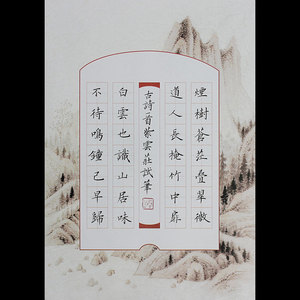 煙樹蒼茫疊翠微
道人長掩竹中扉
古詩首紫雲莊試筆
白雲也識山居味
不待鳴鐘已早歸